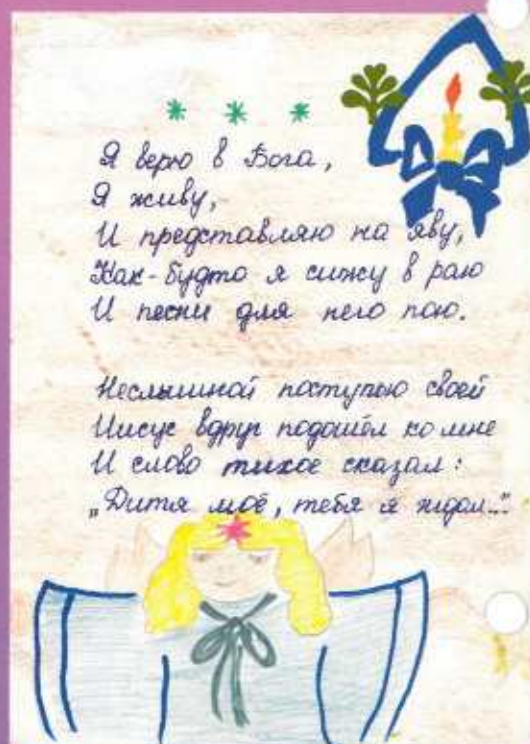 * * *
Я верю в Бога,
Я живу,
И представляю на яву,
Как-будто я сижу в раю
И песни для него пою.
Неслышной поступью своей
Иисус вдруг подошёл ко мне
И слово тихое сказал:
„Дитя моё, тебя я ждал..."